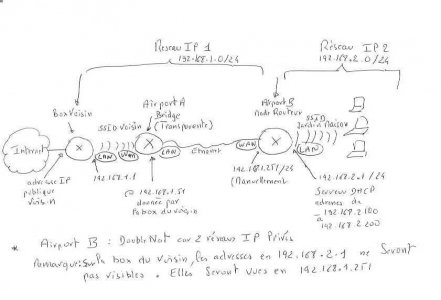 Réseau IP 1
192.168.1.0/24
Réseau IP 2
192.168.2.0/24
Box Voisin
Airport A
Bridge
(Transparente)
Airport B
mode Routeur
SSID Voisin
SSID
Jardin Maison
Internet
X
X
X
LAN
WAN
LAN
Ethernet
WAN
LAN
adresse IP
publique
Voisin
192.168.1.1
@ 192.168.1.51
donnée par
la box du voisin
192.168.1.251/24
(Manuellement)
192.168.2.1/24
Serveur DHCP
adresses de
192.168.2.100
à
192.168.2.200
* Airport B : Double Nat car 2 réseaux IP Privés
Remarque: Sur la box du voisin, les adresses en 192.168.2.1 ne seront
pas visibles. Elles seront vues en 192.168.1.251